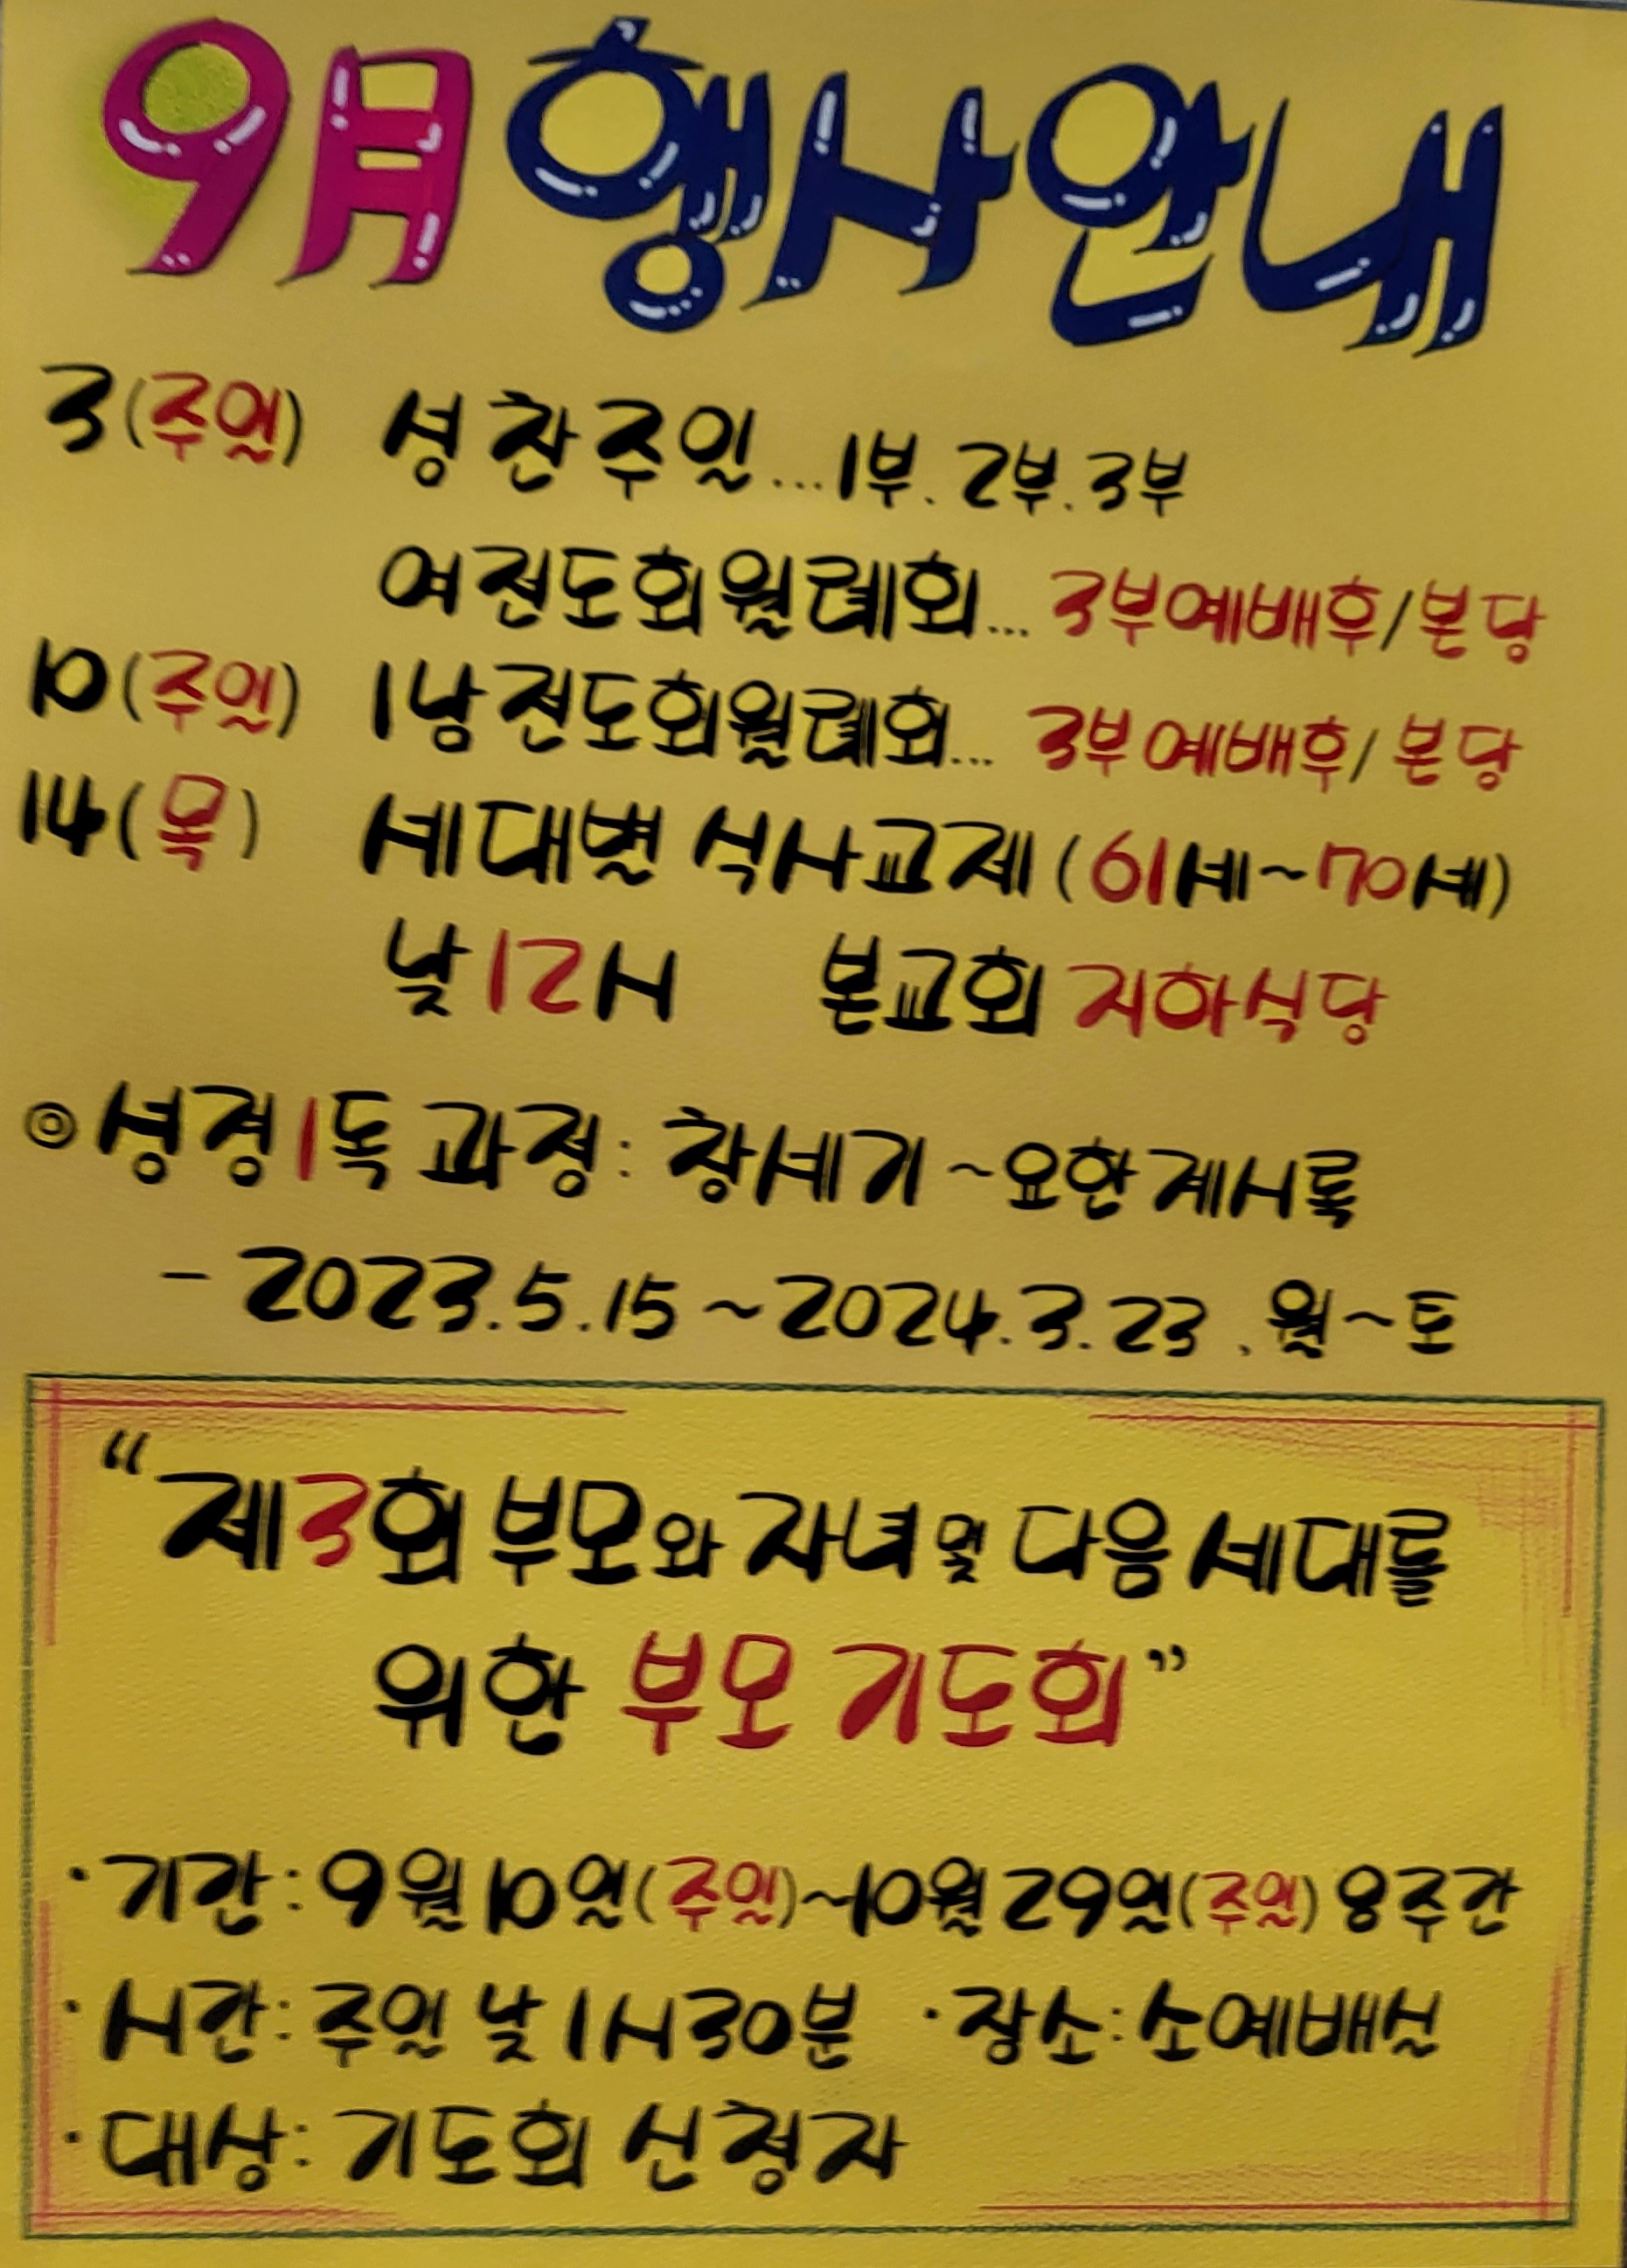 9月 행사안내
3(주일) 성찬주일...1부.2부.3부
여전도회월례회... 3부예배후/본당
10(주일) 1남전도회월례회... 3부예배후/본당
14(목) 세대별 식사교제(61세~70세)
낮12시 본교회 지하식당
◎성경1독 과정: 창세기~요한계시록
- 2023.5.15~2024.3.23. 월~토
"제3회 부모와 자녀 및 다음 세대를
위한 부모 기도회"
·기간: 9월 10일(주일)~10월 29일(주일) 8주간
·시간: 주일 낮 1시30분 ·장소: 소예배실
·대상: 기도회 신청자